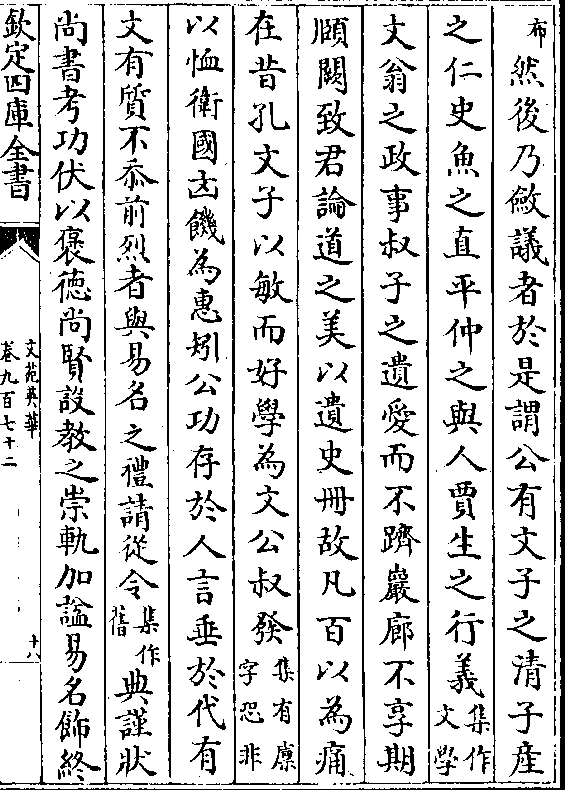 布然後乃斂議者於是謂公有文子之清子產
之仁史魚之直平仲之與人賈生之行義集作文學
文翁之政事叔子之遺愛而不躋巖廊不享期
頤闕致君論道之美以遺史冊故凡百以為痛
在昔孔文子以敏而好學為文公叔發集有廪字恐非
以恤衛國凶饑為惠矧公功存於人言垂於代有
文有質不忝前烈者與易名之禮請從令集作舊典謹狀
尚書考功伏以襃德尚賢設教之崇軌加謚易名飾終
欽定四庫全書
文苑英華
卷九百七十二
十八